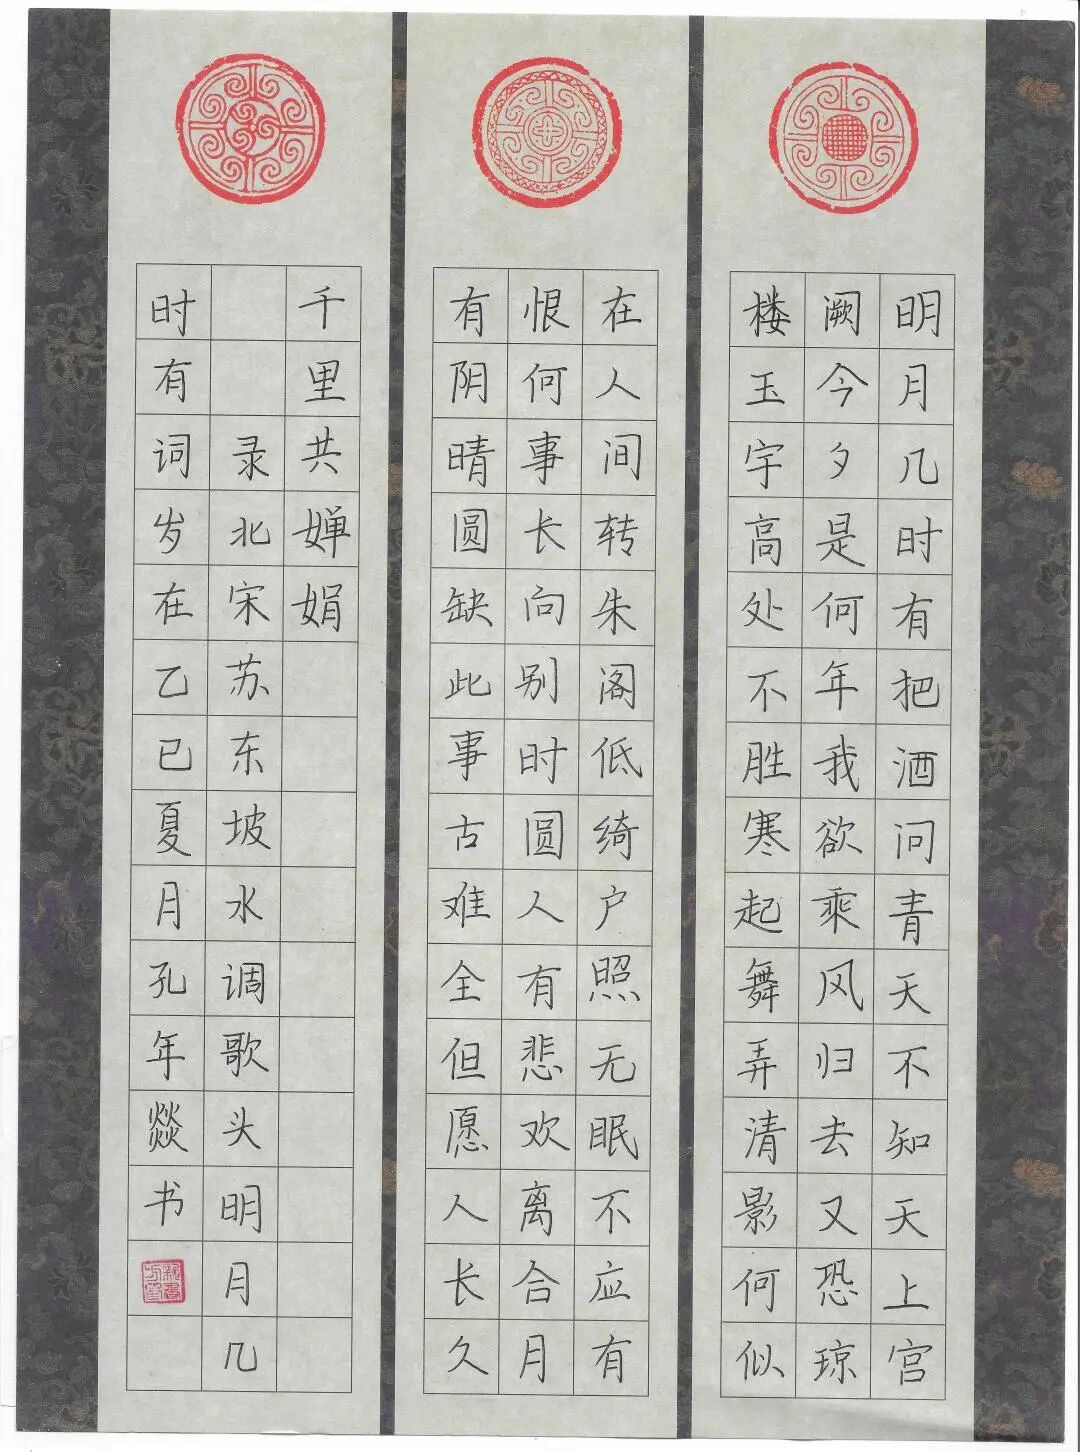 明月几时有把酒问青天不知天上宫
阙今夕是何年我欲乘风归去又恐琼
楼玉宇高处不胜寒起舞弄清影何似
在人间转朱阁低绮户照无眠不应有
恨何事长向别时圆人有悲欢离合月
有阴晴圆缺此事古难全但愿人长久
千里共婵娟
录北宋苏东坡水调歌头明月几
时有词岁在乙已夏月孔年燚书